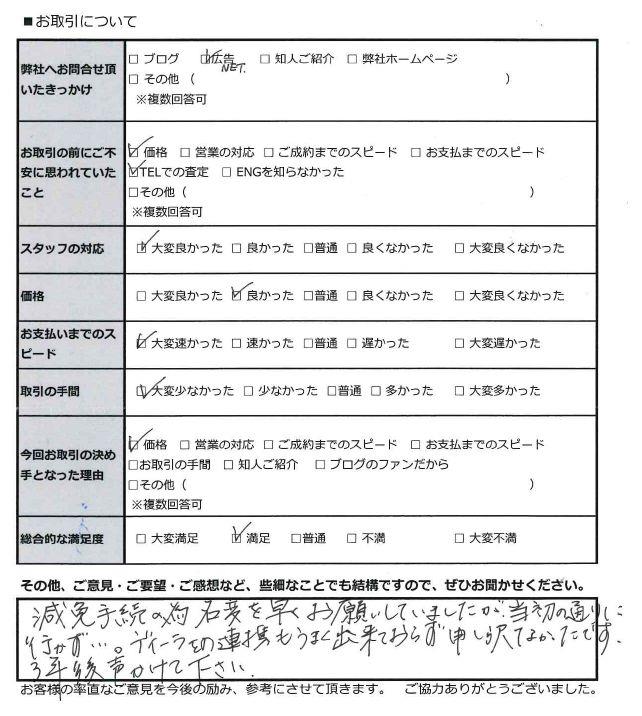 ■お取引について
弊社へお問合せ頂いたきっかけ
□ ブログ ☑広告 □ 知人ご紹介 □ 弊社ホームページ
NET.
□ その他 ( )
※複数回答可
お取引の前にご不安に思われていたこと
☑ 価格 □ 営業の対応 □ ご成約までのスピード □ お支払までのスピード
☑TELでの査定 □ ENGを知らなかった
□その他 ( )
※複数回答可
スタッフの対応 ☑ 大変良かった □ 良かった □普通 □ 良くなかった □ 大変良くなかった
価格 □ 大変良かった ☑ 良かった □普通 □ 良くなかった □ 大変良くなかった
お支払いまでのスピード ☑ 大変速かった □ 速かった □普通 □ 遅かった □ 大変遅かった
取引の手間 ☑ 大変少なかった □ 少なかった □普通 □ 多かった □ 大変多かった
今回お取引の決め手となった理由
☑ 価格 □ 営業の対応 □ ご成約までのスピード □ お支払までのスピード
□お取引の手間 □ 知人ご紹介 □ ブログのファンだから
□その他 ( )
※複数回答可
総合的な満足度 □ 大変満足 ☑ 満足 □普通 □ 不満 □ 大変不満
その他、ご意見・ご要望・ご感想など、些細なことでも結構ですので、ぜひお聞かせください。
減免手続の為名変を早くお願いしていましたが、当初の通りに
行かず…。ディーラとの連携もうまく出来ておらず申し訳なかったです。
3年後声かけて下さい.
お客様の率直なご意見を今後の励み、参考にさせて頂きます。 ご協力ありがとうございました。